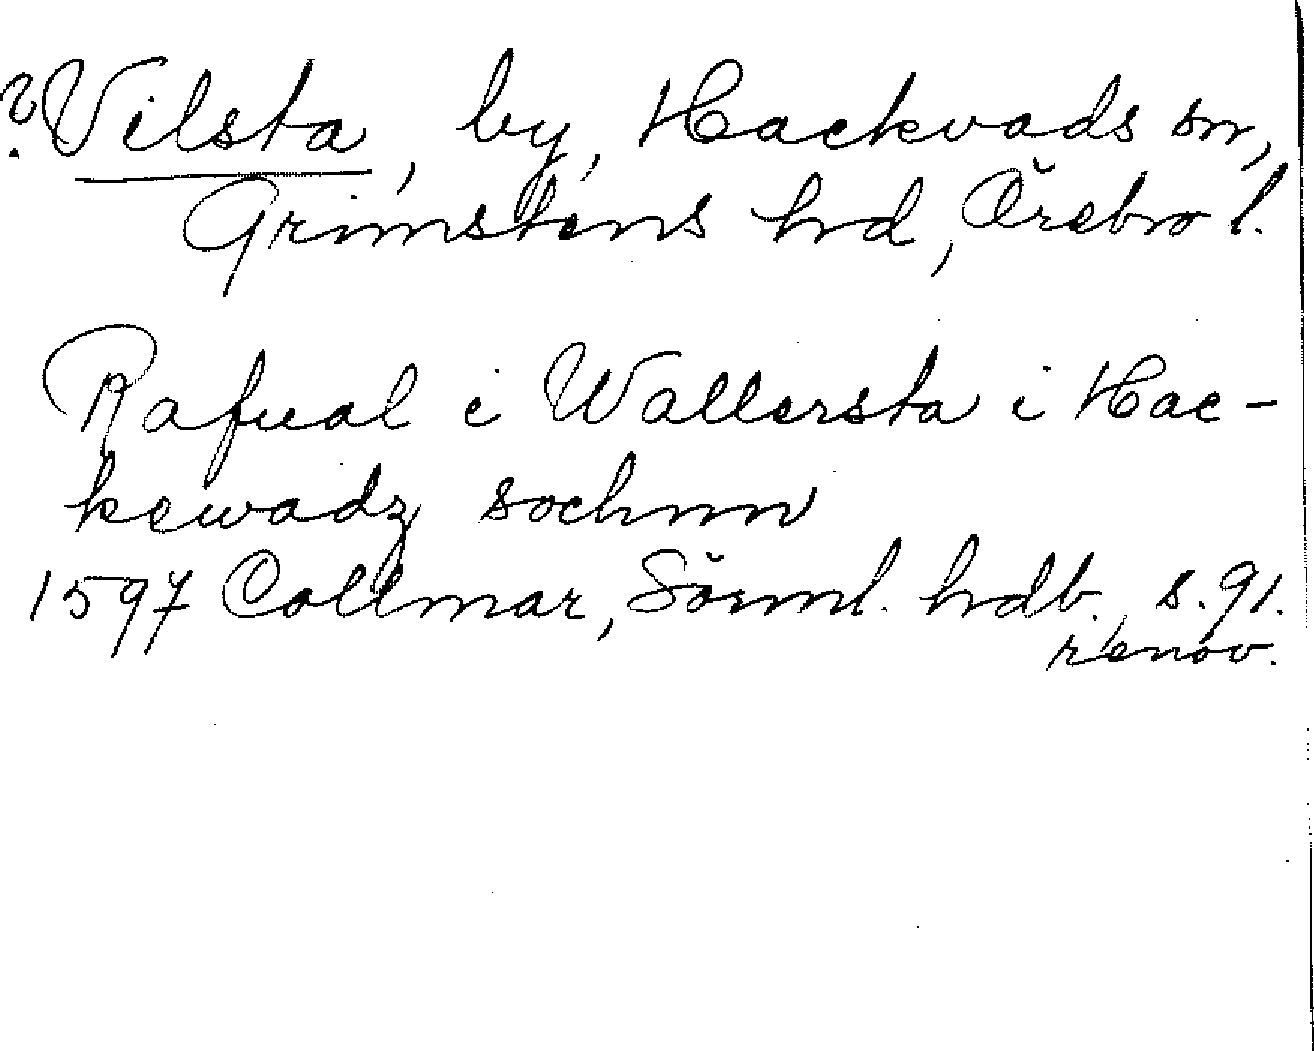 ? Vilsta, by, Hackvads sn,
Grimstens hd, Örebro l.
Rafual i Wallersta i Hac-
kewadz sochnn
1597 Collmar, Sörml. hdb., s. 91.
renov.